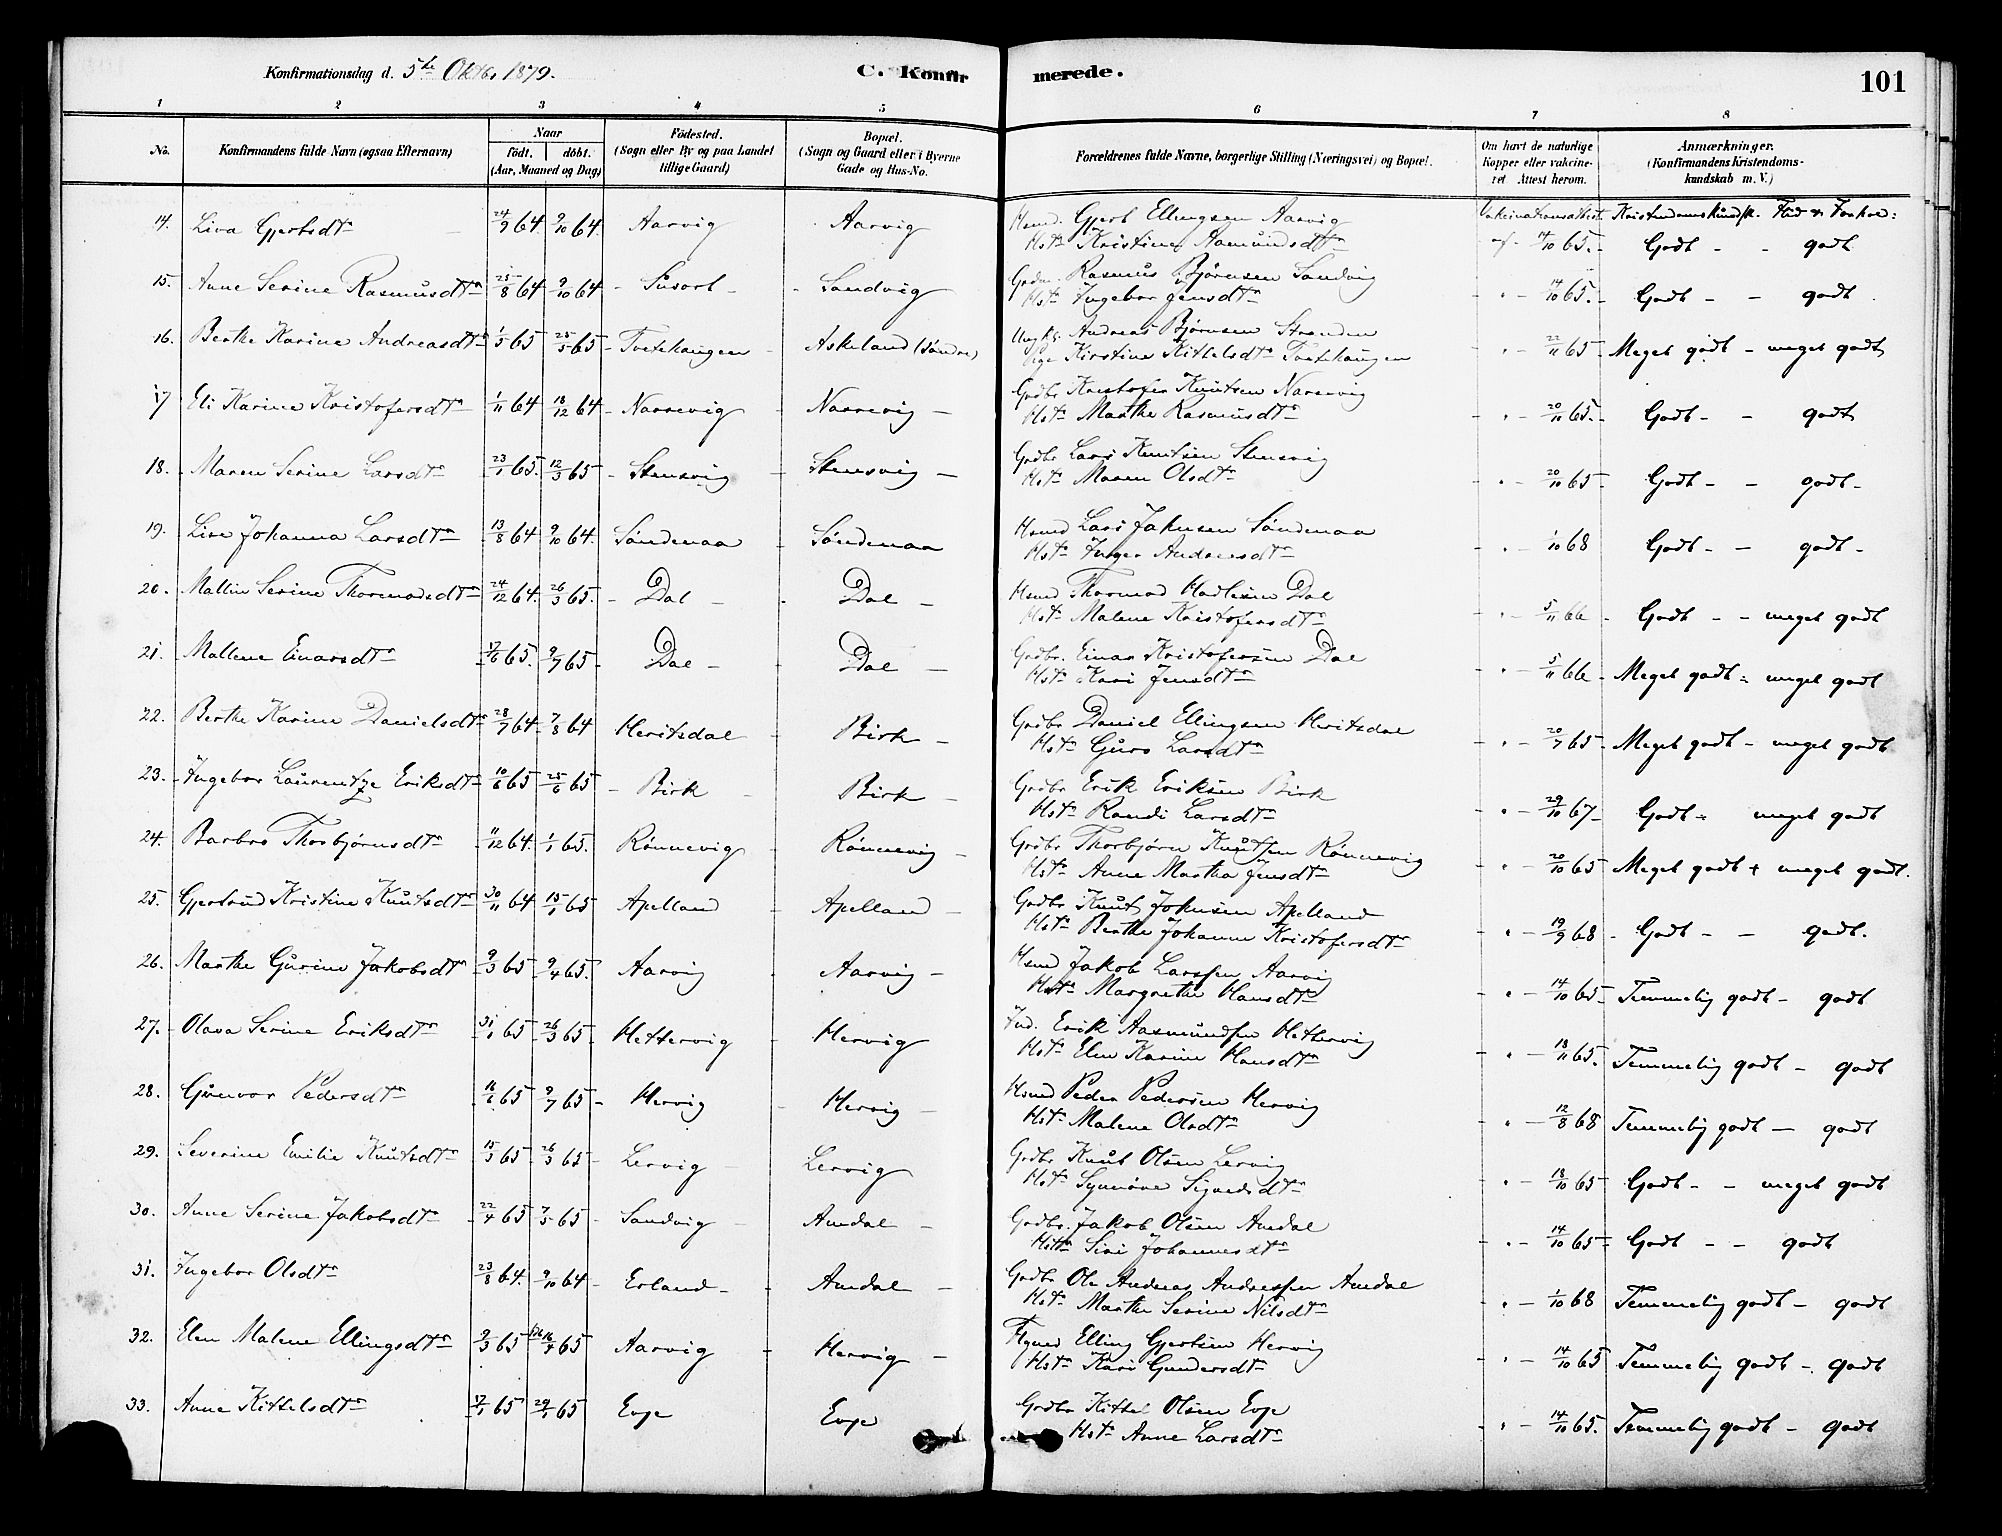 Konfirmationsdag d. 5te Oktbr 1879. C. Konfirmerede. 101
1 2 3 4 5 6 7 8
No. Konfirmandens fulde Navn (ogsaa Efternavn) Naar födt. döbt. (Aar, Maaned og Dag) Födested. (Sogn eller By og paa Landet tillige Gaard) Bopæl. (Sogn og Gaard eller i Byerne Gade og Hus-No. Forældrenes fulde Navne, borgerlige Stilling (Næringsvei) og Bopæl. Om havt de naturlige Kopper eller vakcineret. Attest herom. Anmærkninger. (Konfirmandens Kristendomskundskab m. V.)
14. Liva Gjertsdtr 24/9 64 9/10 64 Aarvig Aarvig Hsmd. Gjert Ellingsen Aarvig Vakcinationsattest Kristendomskundsk. Flid og Forhold:
Hstr Kristine Aamundsdtr af 14/10 65. Godt - - godt
15. Anne Serine Rasmusdtr 25/8 64 9/10 64 Susort Sandvig Grdm. Rasmus Bjørnsen Sandvig
Hstr Ingebor Jensdtr " 14/10 65. Godt - - godt
16. Berthe Karine Andreasdtr 1/5 65 25/5 65 Tvetehaugen Askeland (søndre) Ungk. Andreas Bjørnsen Stranden
Pige Kirstine Kittelsdtr Tvetehaugen " 22/11 65 Meget godt - meget godt
17 Eli Karine Kristofersdtr 1/11 64 18/12 64 Narrevig Narrevig Grdbr Kristofer Knutsen Narrevig
Hstr Marthe Rasmusdtr " 20/11 65. Godt - - godt
18. Maren Serine Larsdtr 23/1 65. 12/3 65 Stensvig Stensvig Grdbr Lars Knutsen Stensvig
Hstr Maren Olsdtr " 20/10 65 Godt - - godt -
19. Lise Johanna Larsdtr 13/8 64 9/10 64. Søndenaa Søndenaa Hsmd Lars Jahnsen Søndenaa
Hstr Inger Andreasdtr " 1/10 68 Godt - - godt -
20. Mallin Serine Thormodsdtr 24/12 64. 26/3 65. Dal Dal Hsmd Thormod Hadlesen Dal
Hstr Malene Kristofersdtr " 5/11 66 Godt - - meget godt
21. Mallene Einarsdtr 17/6 65. 9/7 65 Dal Dal Grdbr. Einar Kristofersen Dal
Hstr Kari Jensdtr " 5/11 66 Meget godt - meget godt
22. Berthe Karine Danielsdtr 28/7 64 7/8 64 Heritsdal Birk Grdbr Daniel Ellingsen Heritsdal
Hstr Guro Larsdtr " 20/7 65 Meget godt - meget godt
23. Ingebor Laurentze Eriksdtr 10/6 65 25/6 65 Birk Birk Grdbr Erik Eriksen Birk
Hstr Randi Larsdtr " 29/10 67 Godt - meget godt
24. Barbro Thorbjørnsdtr 11/12 64. 1/1 65. Rønnevig Rønnevig Grdbr Thorbjørn Knutsen Rønnevig
Hstr Anne Martha Jensdtr " 20/10 65 Meget godt + meget godt.
25. Gjertrud Kristine Knutsdtr 30/11 64 15/1 65 Apelland Apelland Grdbr Knut Johnsen Apelland
Hstr Berthe Johanne Kristofersdtr " 19/9 68 Godt - - godt.
26. Marthe Gurine Jakobsdtr 9/3 65 9/4 65. Aarvig Aarvig Hsmd Jakob Larssen Aarvig
Hstr Margrethe Hansdtr " 14/10 65 Temmelig godt - godt
27. Olava Serine Eriksdtr 31/1 65 26/3 65. Hettervig Hervig Ind. Erik Aasmundsen Hettervig
Hstr Elen Karine Hansdtr " 18/11 65. Temmelig godt - godt
28. Gunvor Pedersdtr 16/6 65 9/7 65 Hervig Hervig Hsmd Peder Pedersen Hervig
Hstr Malene Olsdtr " 12/8 68 Temmelig godt - godt
29. Severine Emilie Knutsdtr 15/3 65 26/3 65 Lervig Lervig Grdbr Knut Olsen Lervig
Hstr Synnøve Sigvedsdtr " 18/10 65 Godt - - meget godt
30. Anne Serine Jakobsdtr 22/4 65 7/5 65 Sandvig Amdal Grdbr. Jakob Olsen Amdal
Hstr Siri Johannesdtr " 14/10 65 Godt - - godt
31. Ingebor Olsdtr 23/8 64. 9/10 64 Erland Amdal Grdbr Ole Andreas Andreassen Amdal
Hstr Marthe Serine Nilsdtr " 1/10 68 Temmelig godt - godt
32. Elen Malene Ellingsdtr 9/3 65 16/4 65 Aarvig Hervig Elling Gjertsen Hervig
Hstr Kari Gundersdtr " 14/10 65 Temmelig godt - godt
33. Anne Kittelsdtr 17/1 65 29/1 65 Evje Evje Grdbr Kittel Olsen Evje
Hstr Anne Larsdtr " 14/10 65. Temmelig godt - godt